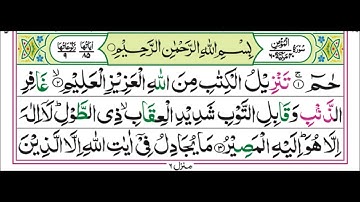 سُوْرَةُ الْمُؤْمِنِ
بِسْمِ اللّٰهِ الرَّحْمٰنِ الرَّحِيْمِ
اٰيَاتُهَا ٨٥ رُكُوْعَاتُهَا ٩
حٰمٓ ۚ﴿۱﴾ تَنْزِيْلُ الْكِتٰبِ مِنَ اللّٰهِ الْعَزِيْزِ الْعَلِيْمِ ۙ﴿۲﴾ غَافِرِ
الذَّنْۢبِ وَقَابِلِ التَّوْبِ شَدِيْدِ الْعِقَابِ ۙ ذِى الطَّوْلِ ؕ لَاۤ اِلٰهَ
اِلَّا هُوَ ؕ اِلَيْهِ الْمَصِيْرُ ﴿۳﴾ مَا يُجَادِلُ فِىْۤ اٰيٰتِ اللّٰهِ اِلَّا الَّذِيْنَ
منزل ٦